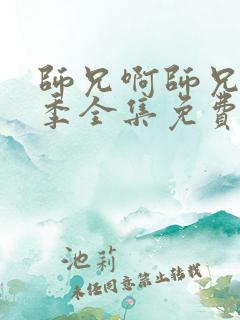 師兄啊師兄
季全集免費
池莉
未经同意禁止转载